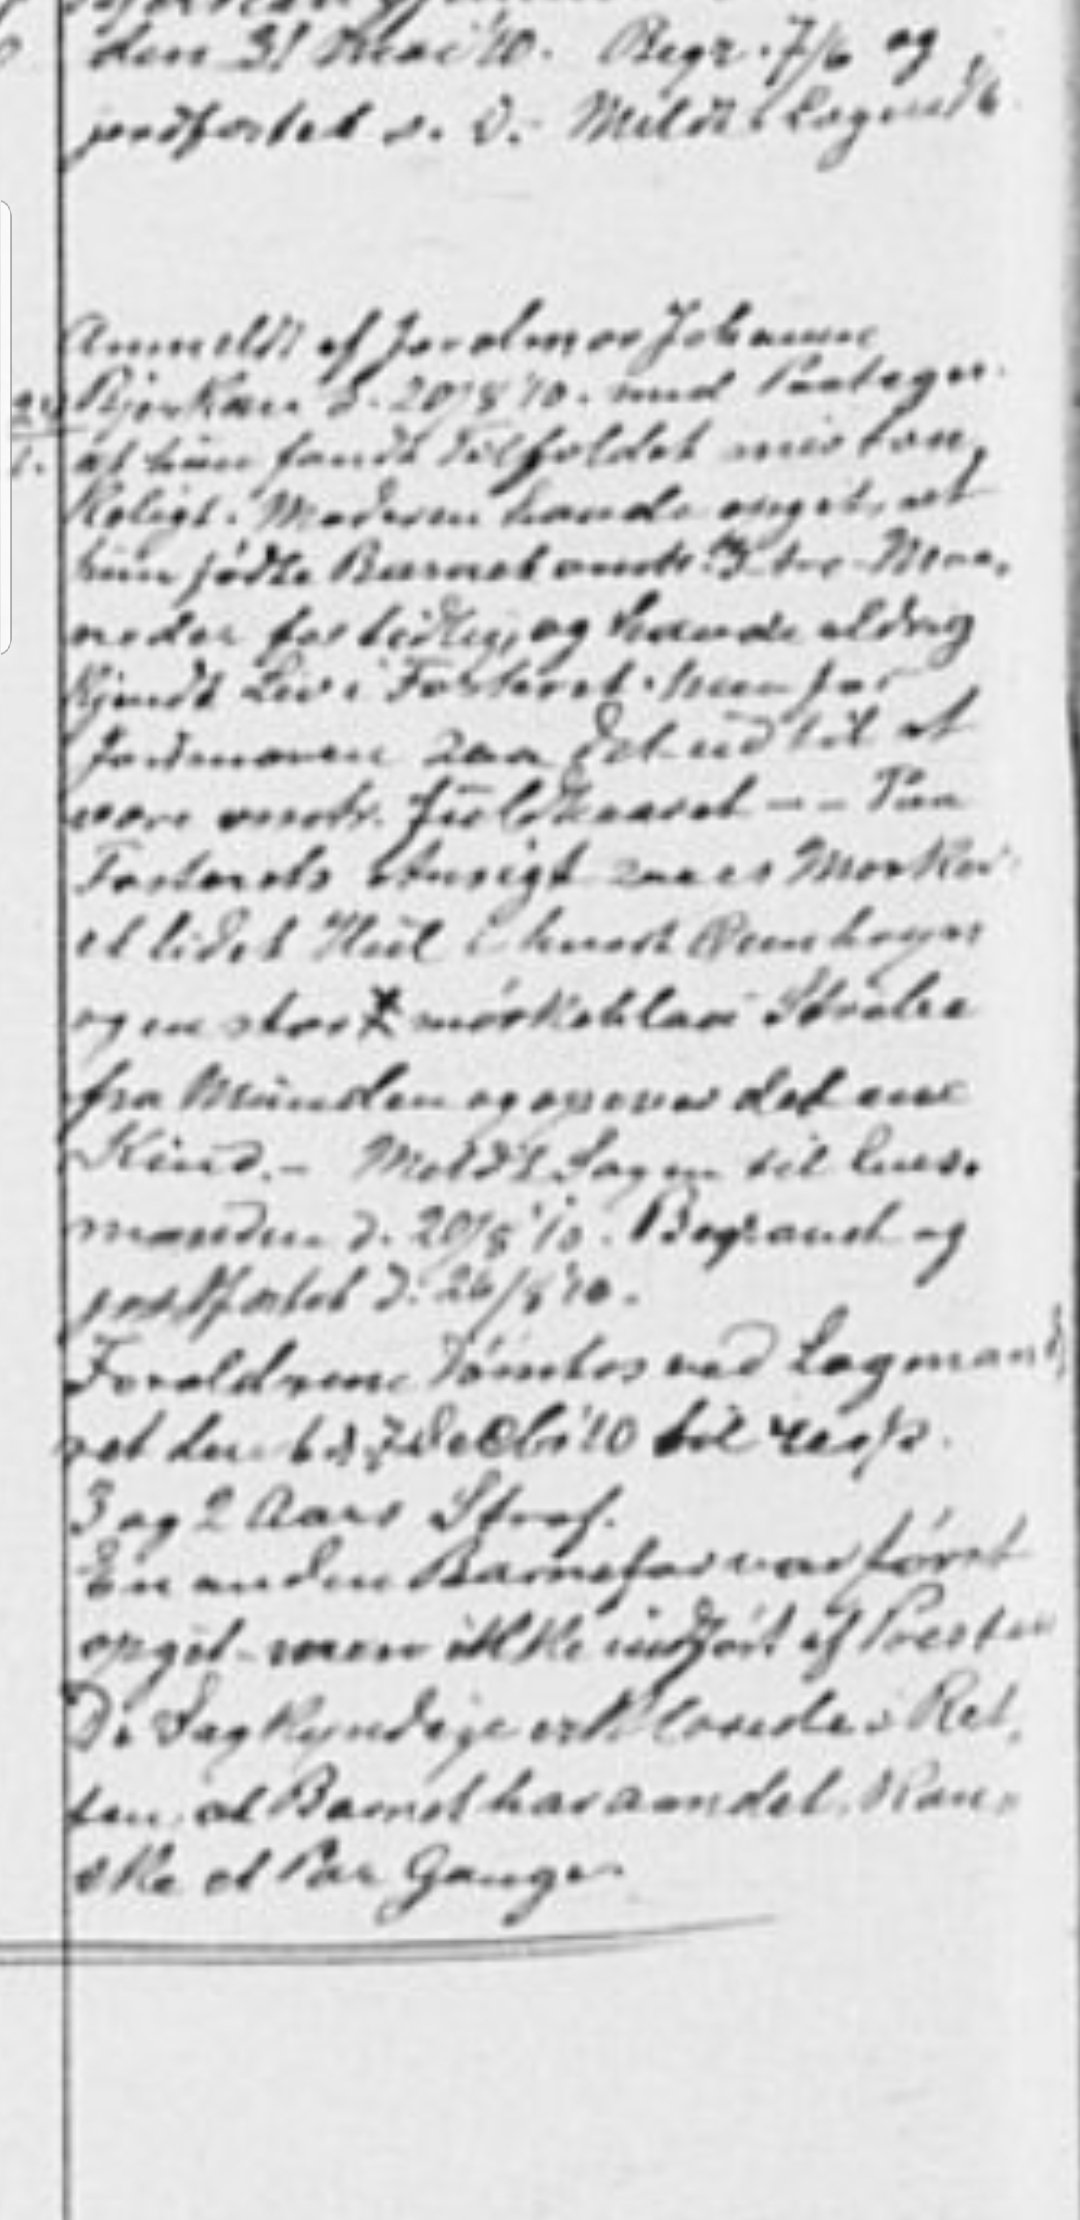 den 31 Mai '10. Begr. 7/6 og
jordfæstet s. D. Meldt Lensm.
Anmeldt af Jordmor Johanne
Bjerkan d. 20/8 '10. med Paategn.
at hun fandt Tilfældet mistæn,
keligt. Moderen havde opgit, at
hun fødte Barnet omtr. 3 tre Maa,
neder for tidlig, og havde aldrig
kjendt Liv i Fosteret. Men for
Jordmoren saa det ud til at
være omtr. fuldbaaret -- Paa
Fosterets Ansigt saaes Mærker
et lidet Hul i hvert Øienhaar
og en stor mörkeblaa Stribe
fra Munden og opover det ene
Kind. - Meldt Sagen til Lens,
manden d. 20/8 '10. Begravet og
jordfæstet d. 26/8 '10.
Forældrene dömtes ved Lagmands
ret den 6 & 7 Decbr '10 til resp.
3 og 2 Aars Straf.
En anden Barnefar var först
opgit - men ikke indfört af Presten
De Sagkyndige erklærede i Ret,
ten, at Barnet har aandet, kan,
ske et Par Gange.